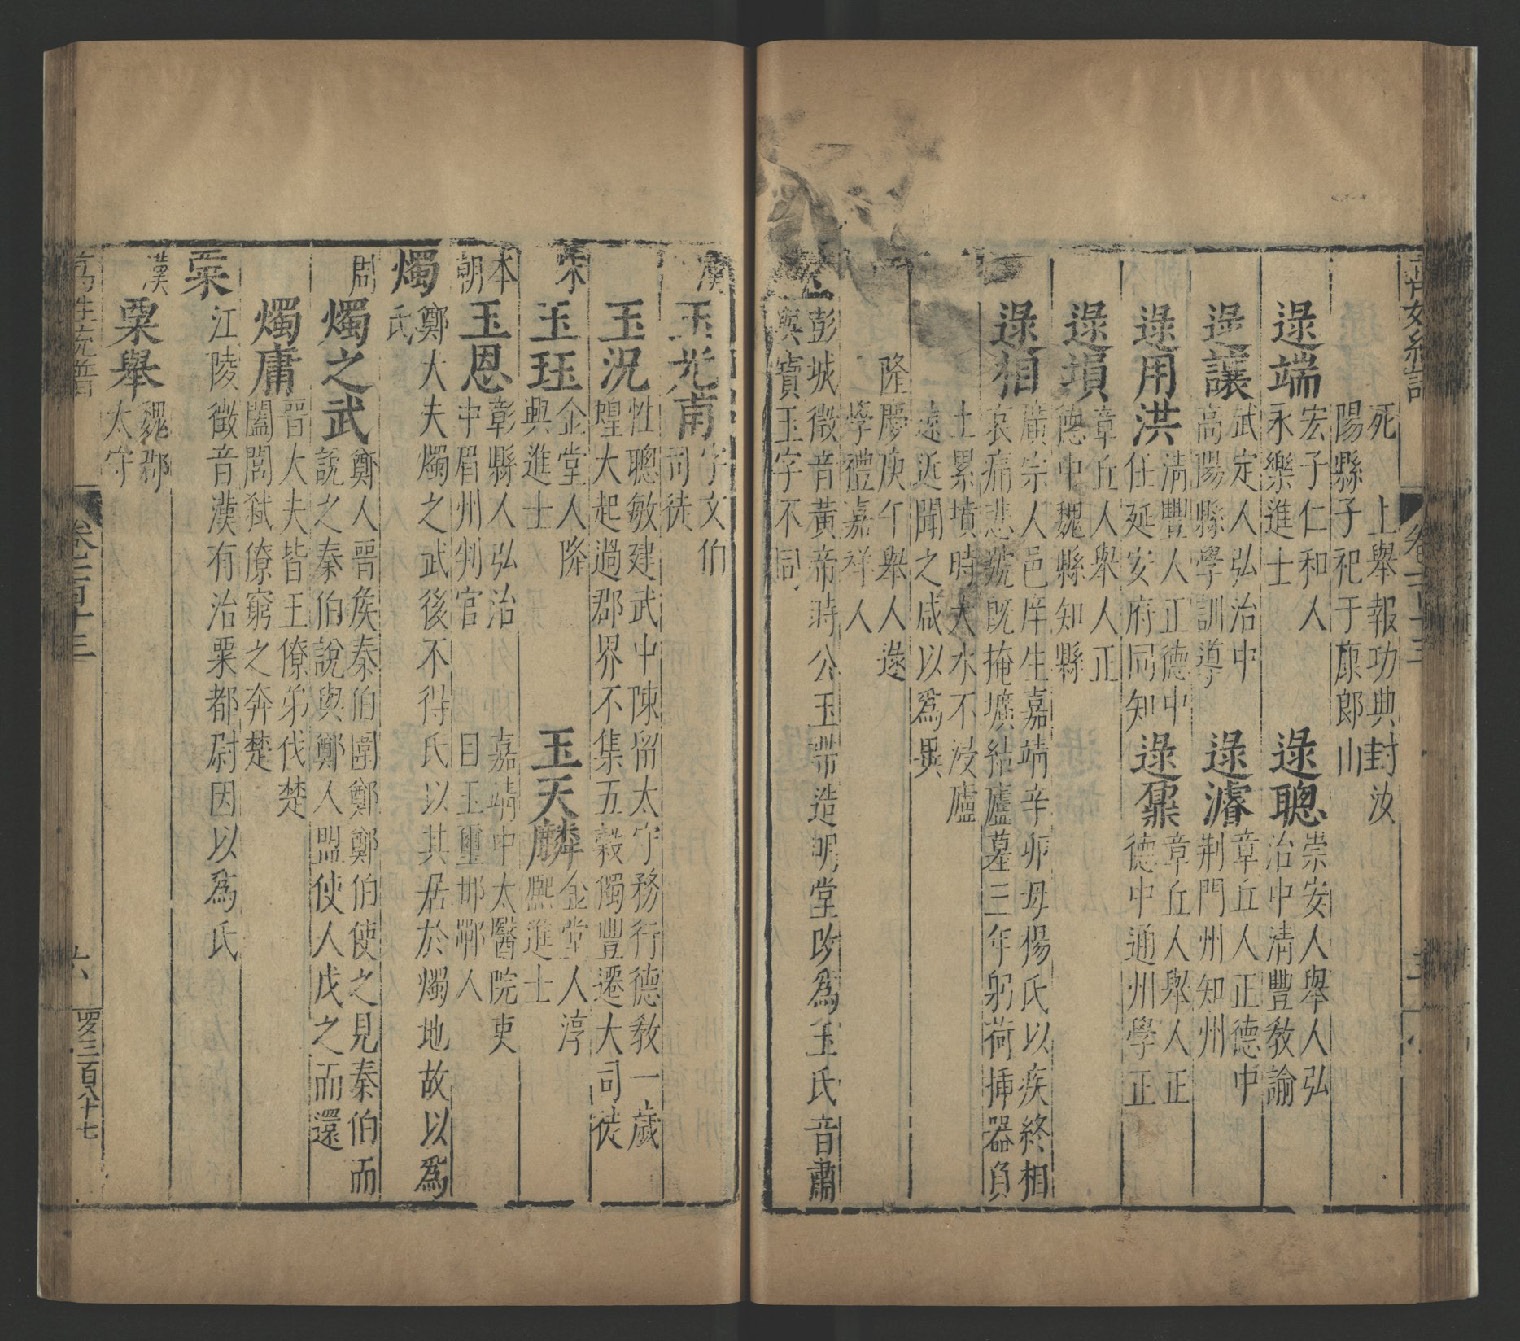 死上舉報功典封汝
陽縣子祀于康郎山
逯端宏子仁和人永樂進士
逯聰崇安人舉人弘治中清豐教諭
逯讓武定人弘治中高陽縣學訓導
逯濬章丘人正德中荆門州知州
逯用洪清豐人正德中任延安府同知
逯𥹋章丘人舉人正德中通州學正
逯塤章丘人舉人正德中魏縣知縣
逯相廣宗人邑庠生嘉靖辛卯母楊氏以疾終相
哀痛悲號旣掩壙結廬墓三年躬荷揷器負
土累墳時大水不浸廬
遠近聞之咸以爲異
隆慶庚午舉人遂
學禮嘉祥人
玉彭城徵音黃帝時公玉帶造明堂以爲玉氏音肅
與寶玉字不同
漢
玉光甫字文伯司徒
玉況性聰敏建武中陳留太守務行德教一歲
蝗大起過郡界不集五穀獨豐遷大司徒
宋
玉珏金堂人隆興進士
玉天麟金堂人淳熙進士
本朝
玉恩彰縣人弘治中眉州判官
嘉靖中太醫院吏目玉璽邯鄲人
燭鄭大夫燭之武後不得氏以其居於燭地故以爲
氏
周
燭之武鄭人晋矦秦伯圍鄭鄭伯使之見秦伯而
說之秦伯說與鄭人盟使人戍之而還
燭庸晋大夫皆王僚弟伐楚
闔閭弑僚窮之奔楚
粟江陵徵音漢有治粟都尉因以爲氏
漢
粟舉魏郡太守
卷一百十三
六